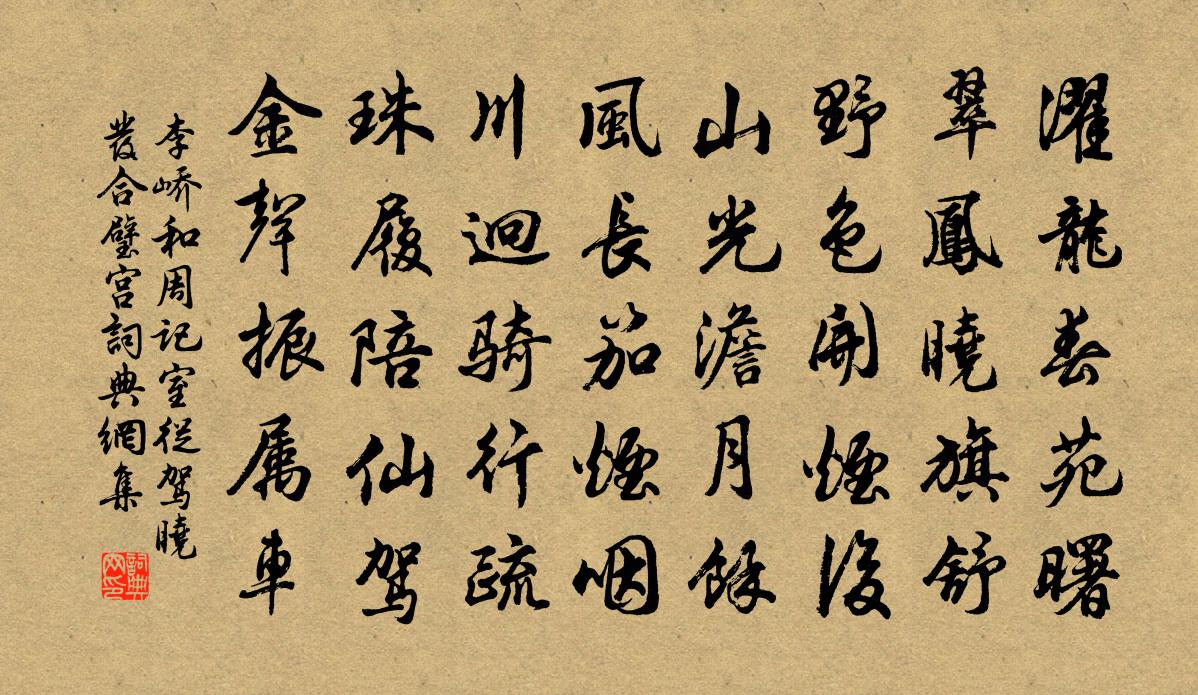 濯龍春苑曙
翠鳳曉旗舒
野色開煙後
山光澹月餘
風長笳煙咽
川迥騎行疏
珠履陪仙駕
金聲振属車
李嶠和周記室從駕曉
發合璧宮詞典網集
詞典
网印